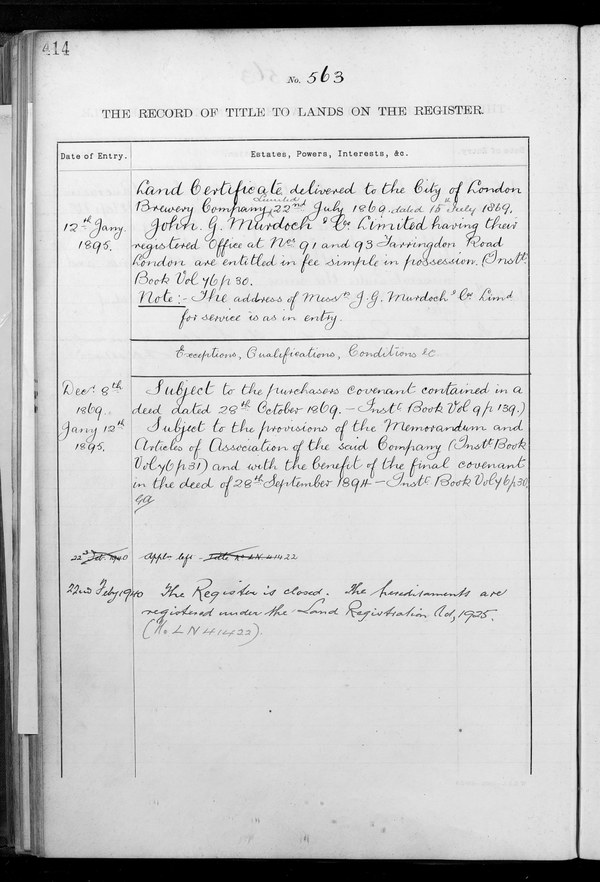 414
No. 563
THE RECORD OF TITLE TO LANDS ON THE REGISTER.
Date of Entry.
Estates, Powers, Interests, &c.
Land Certificate delivered to the City of London
Brewery Company Limited 22nd July 1869. dated 15th July 1869.
12th Jany.
1895.
John. G. Murdoch & Co. Limited having their
registered Office at Nos 91 and 93 Farringdon Road
London are entitled in fee simple in possession. (Instt.
Book Vol 46 p 30.
Note:- The address of Messrs J. G. Murdoch & Co. Limd
for service is as in entry.
Exceptions, Qualifications, Conditions &c
Decr. 8th
1869.
Subject to the purchasers covenant contained in a
deed dated 28th October 1869. - Instt. Book Vol 9 p 139.)
Jany 12th
1895.
Subject to the provisions of the Memorandum and
Articles of Association of the said Company (Instt. Book
Vol 46 p 31) and with the benefit of the final covenant
in the deed of 28th September 1894 - Instt. Book Vol 46 p 30.
22nd Feb. 1940 Appln. left - Title No LN 41422
22nd Feby 1940 The Register is closed. The hereditaments are
registered under the Land Registration Act, 1925.
(No LN 41422).